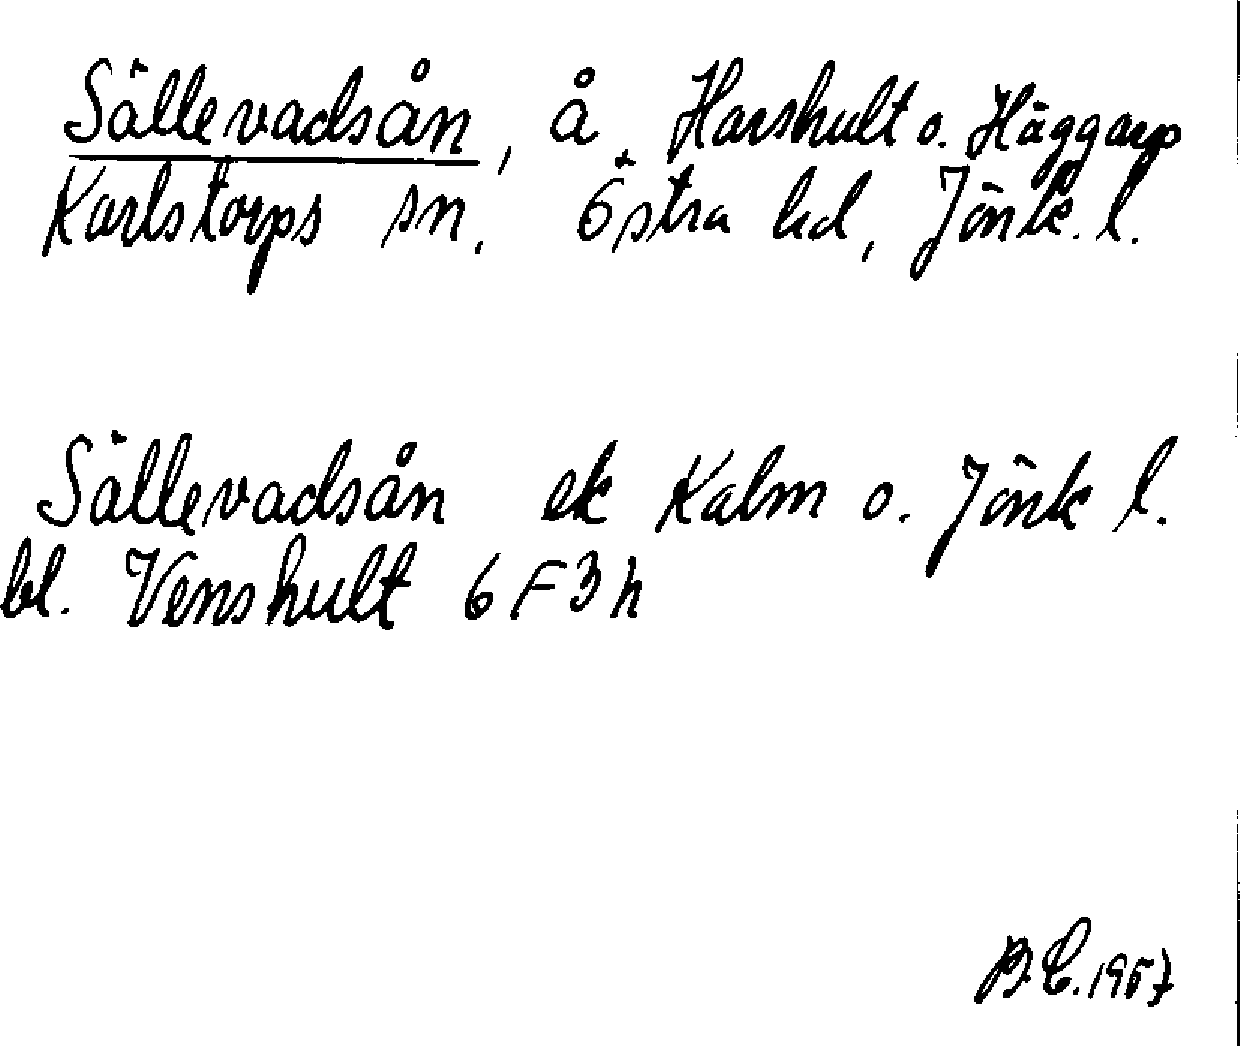 Sällevadsån, å, Harshult o. Häggarp
Karlstorps sn, Östra hd, Jönk. l.
Sällevadsån ek Kalm o. Jönk l.
bl. Venshult 6 F 3 h
B.C. 1957